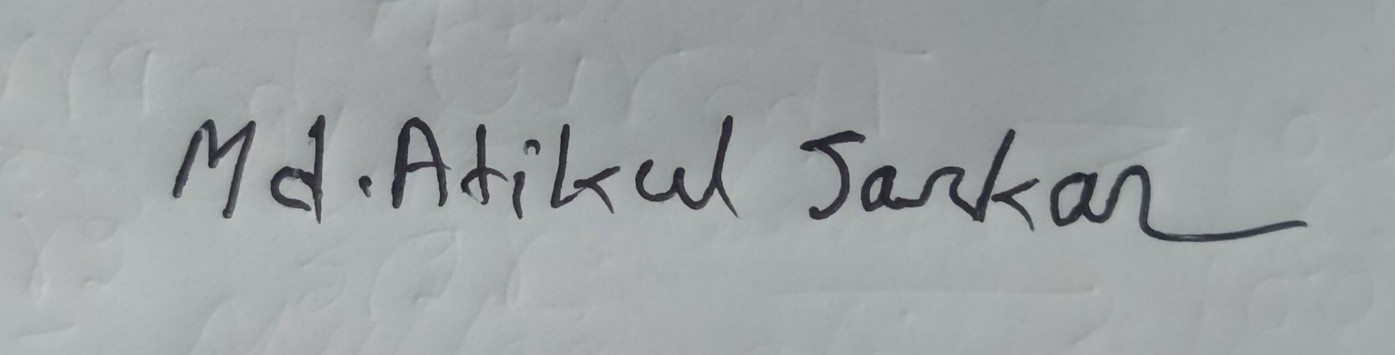 Md. Atikul Sarkar